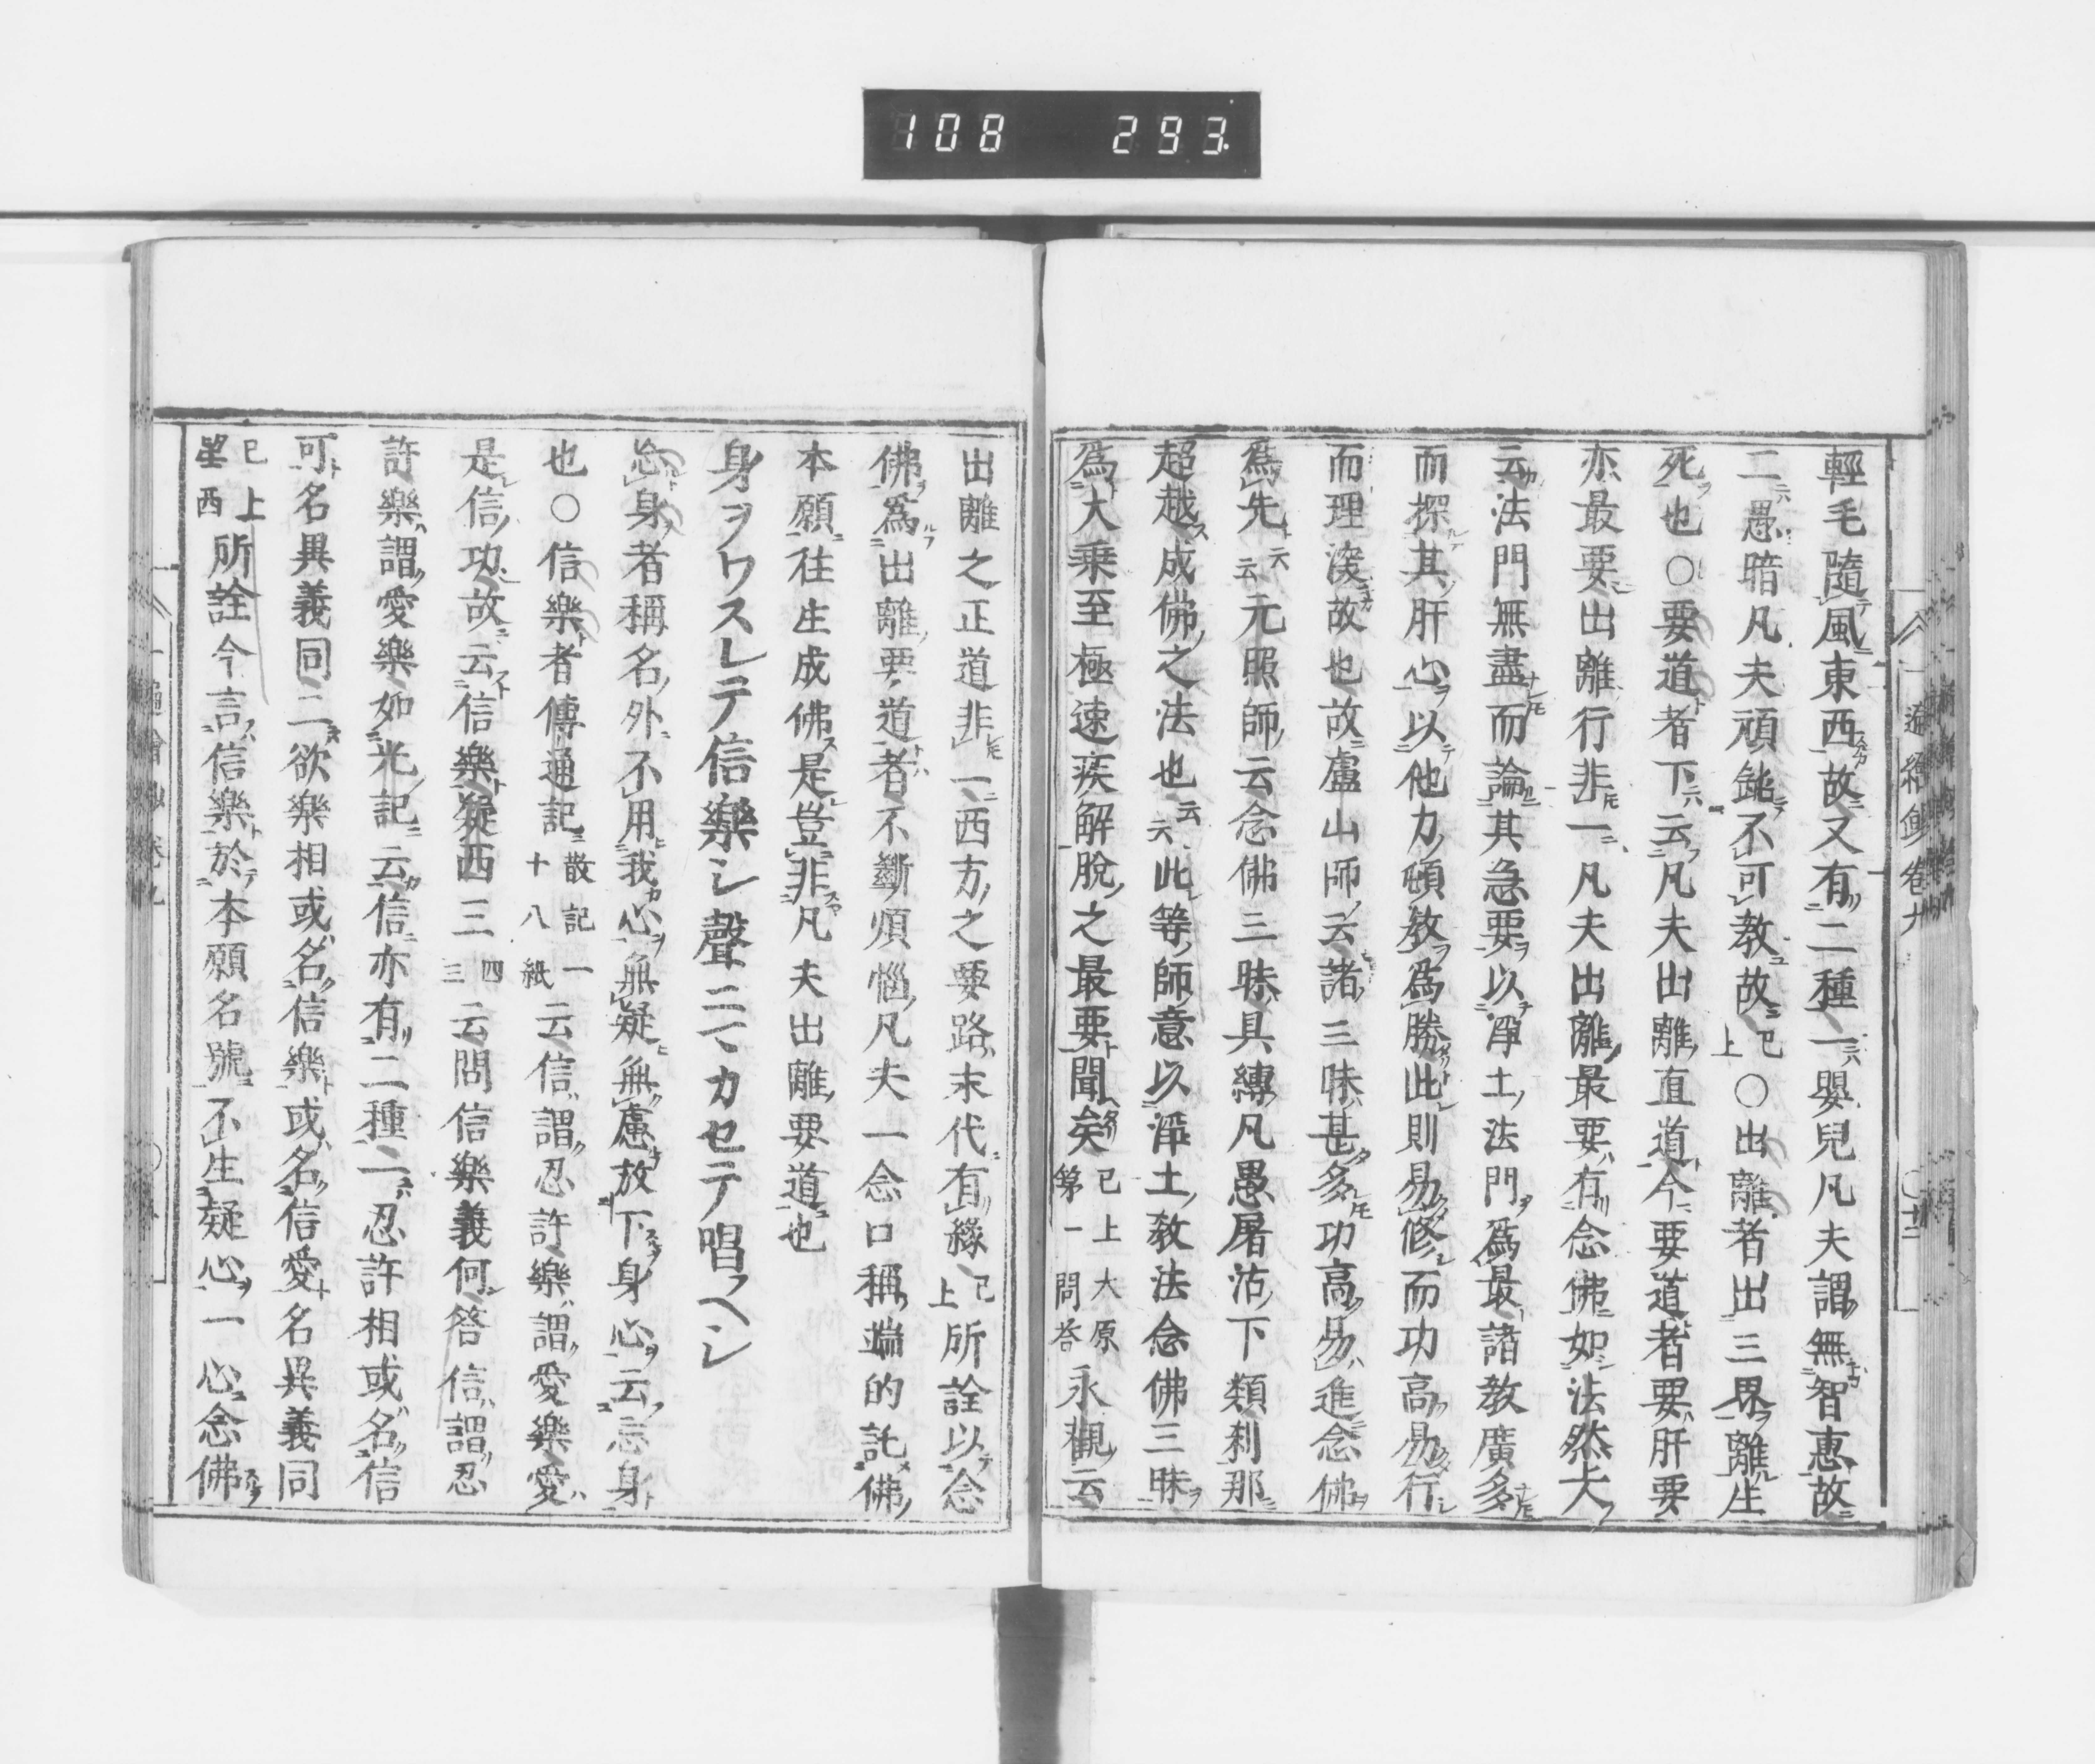 108 293
輕毛隨風東西故又有二種一嬰兒凡夫謂無智惠故
二愚暗凡夫頑鈍不可教故已上○出離者出三界離生
死也○要道者下云凡夫出離直道今要道者要肝要
亦最要出離行非一凡夫出離最要有念佛如法然大
云法門無盡而論其急要以淨土法門爲最諸教廣多
而探其肝心以他力頓教爲勝此則易修而功高易行
而理深故也故盧山師云諸三昧甚多功高易進念佛
爲先云云元照師云念佛三昧具縛凡愚屠沽下類刹那
超越成佛之法也云云此等師意以淨土教法念佛三昧
爲大乗至極速疾解脫之最要聞矣已上大原第一問荅永觀云
出離之正道非一西方之要路末代有緣已上所詮以念
佛爲出離要道者不斷煩惱凡夫一念口稱端的託佛
本願往生成佛是豈非凡夫出離要道也
身ヲワスレテ信樂シ聲ニマカセテ唱フヘシ
忘身者稱名外不用我心無疑無慮放下身心云忘身
也○信樂者傳通記散記一十八紙云信謂忍許樂謂愛樂愛
是信功故云信樂疑西三四三云問信樂義何答信謂忍
許樂謂愛樂如光記云信亦有二種一忍許相或名信
可名異義同二欲樂相或名信樂或名信愛名異義同
已上望西所詮今言信樂於本願名號不生疑心一心念佛